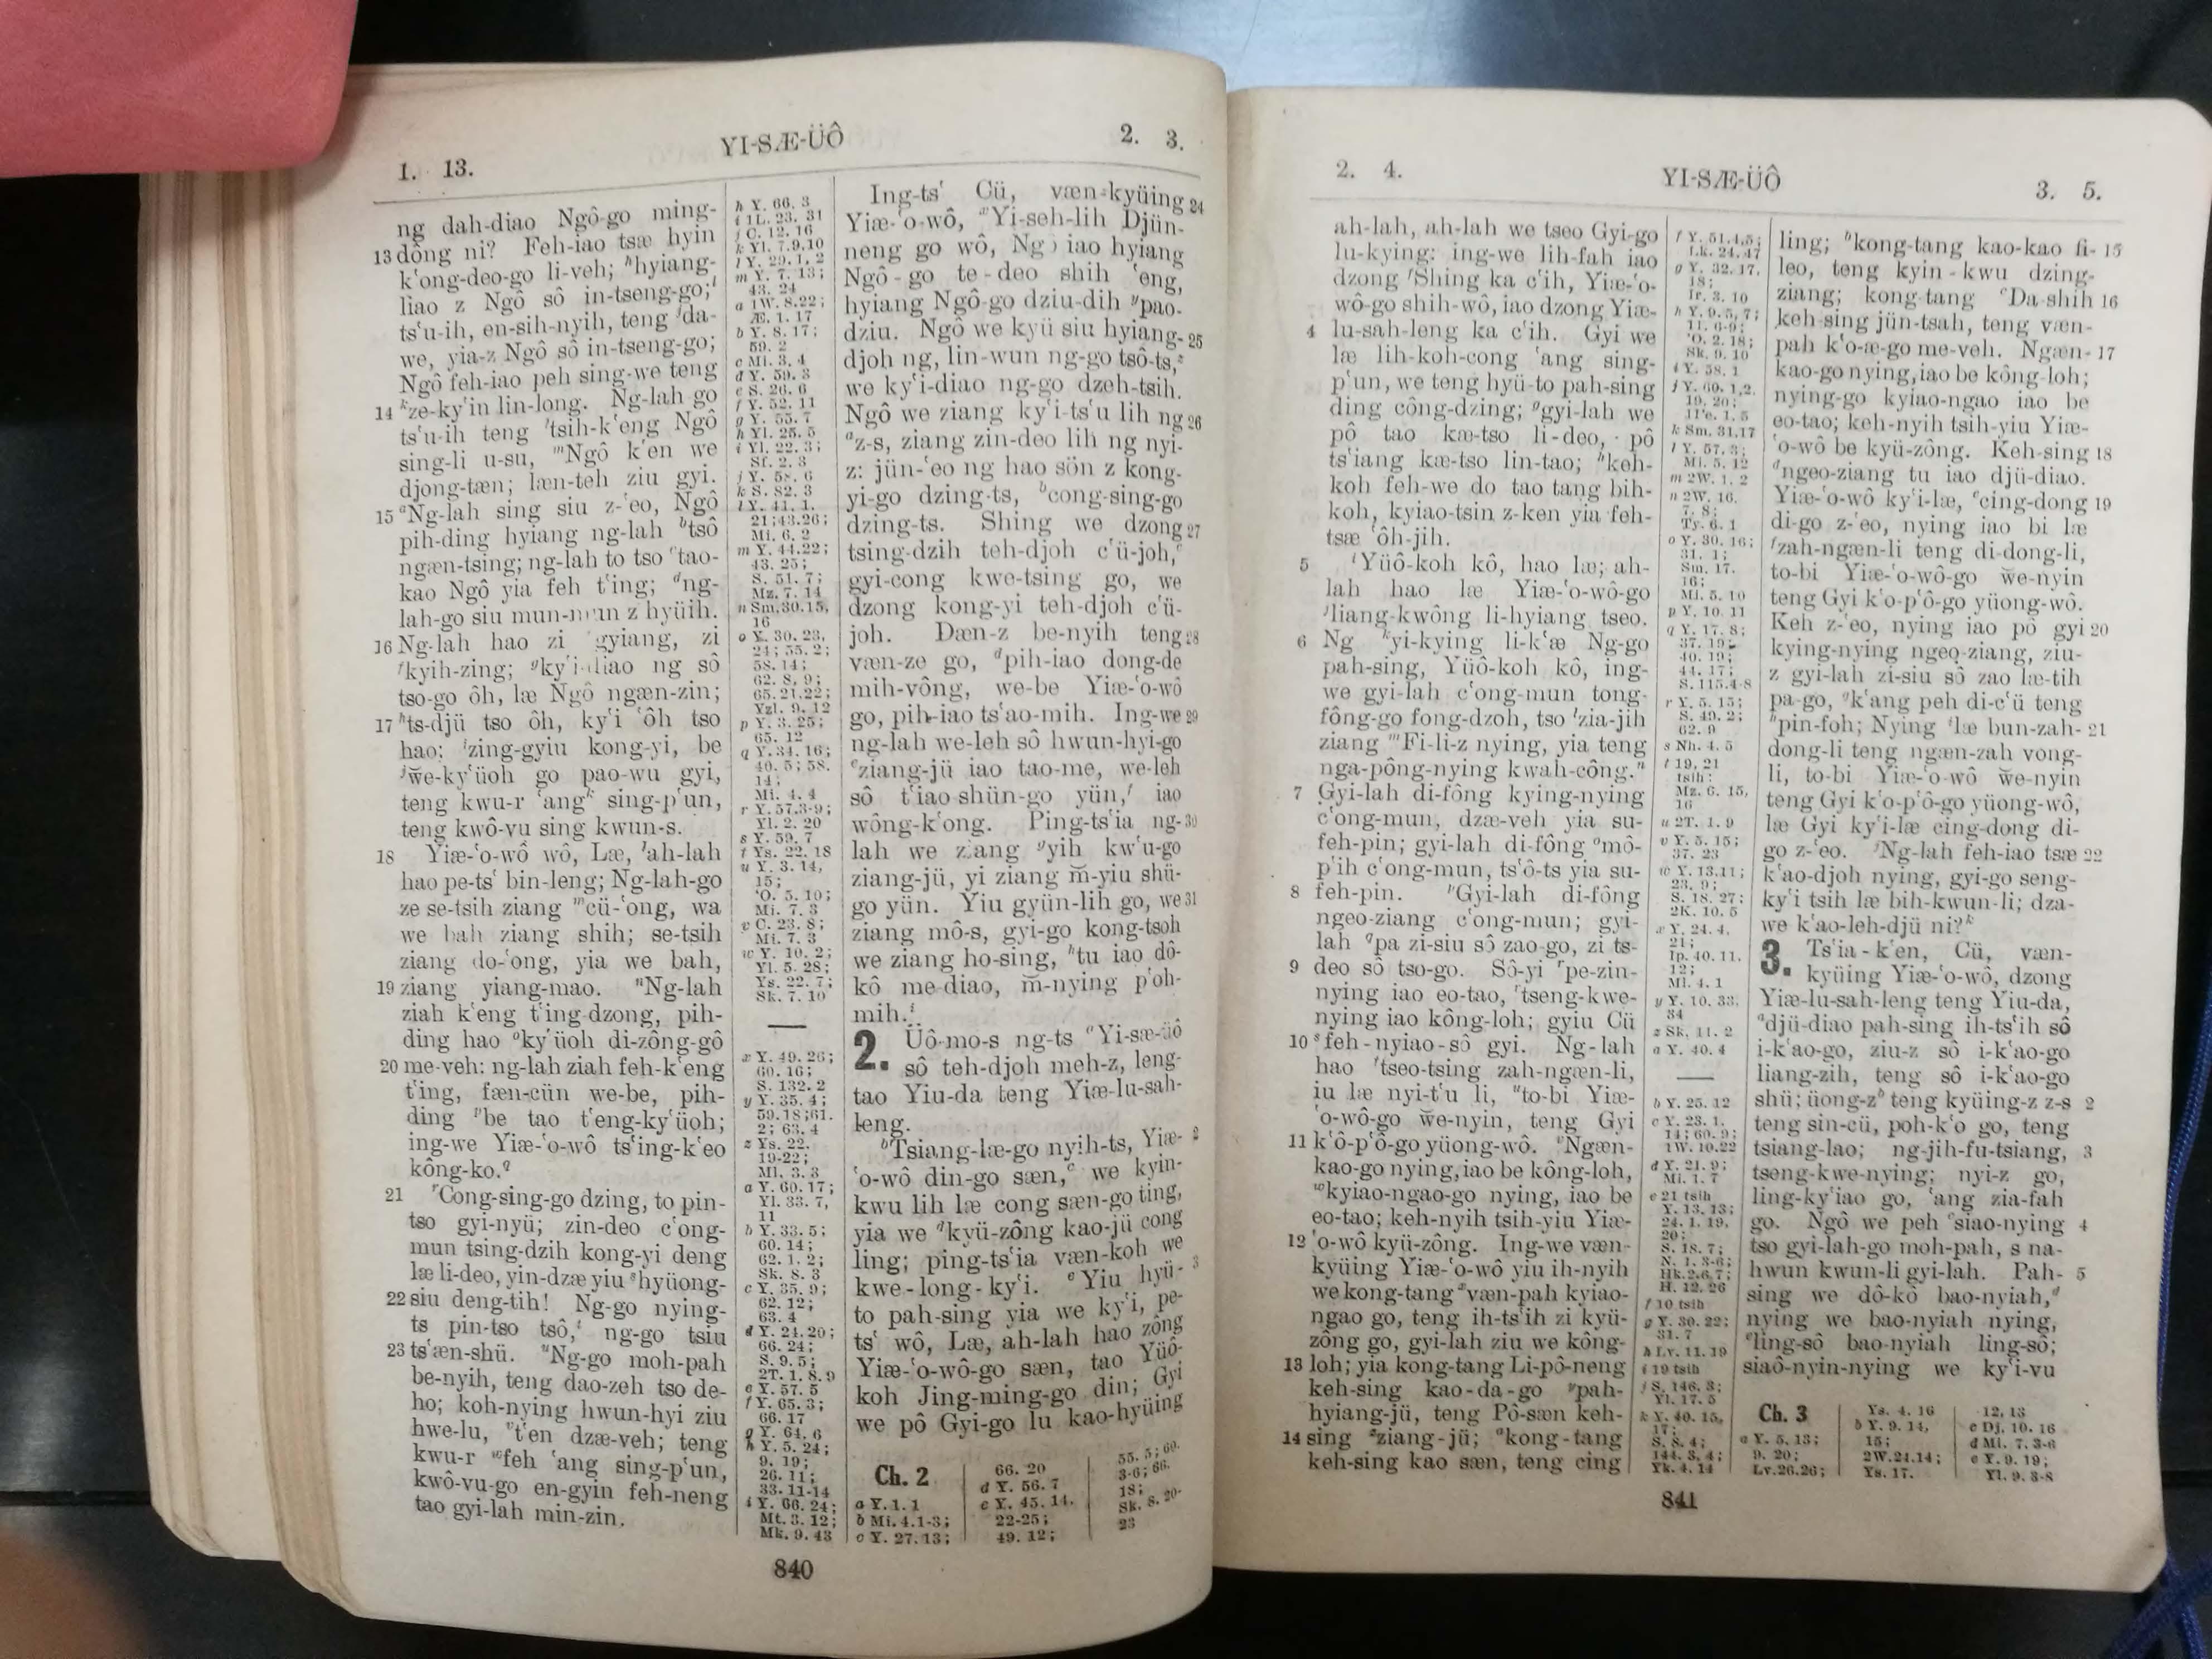 1. 13.
YI-SÆ-ÜÔ
2. 3.
ng dah-diao Ngô-go ming-
13 dông ni? Feh-iao tsæ hyin
k‘ong-deo-go li-veh; ʰhyiang-
liao z Ngô sô in-tseng-go;ⁱ
ts‘u-ih, en-sih-nyih, teng ʲda-
we, yia-z Ngô sô in-tseng-go;
Ngô feh-iao peh sing-we teng
14 ᵏze-ky‘in lin-long. Ng-lah go
ts‘u-ih teng ˡtsih-k‘eng Ngô
sing-li u-su, ᵐNgô k‘en we
djong-tæn; læn-teh ziu gyi.
15 ⁿNg-lah sing siu z-‘eo, Ngô
pih-ding hyiang ng-lah ᵇtsô
ngæn-tsing; ng-lah to tso ᶜtao-
kao Ngô yia feh t‘ing; ᵈng-
lah-go siu mun-mun z hyüih.
16 Ng-lah hao zi gyiang, zi
ᶠkyih-zing; ᵍky‘i-diao ng sô
tso-go ôh, læ Ngô ngæn-zin;
17 ʰts-djü tso ôh, ky‘i ‘ôh tso
hao; ⁱzing-gyiu kong-yi, be
ʲw̆e-ky‘üoh go pao-wu gyi,
teng kwu-r ‘angᵏ sing-p‘un,
teng kwô-vu sing kwun-s.
18 Yiæ-‘o-wô wô, Læ, ˡah-lah
hao pe-ts‘ bin-leng; Ng-lah-go
ze se-tsih ziang ᵐcü-‘ong, wa
we bah ziang shih; se-tsih
ziang do-‘ong, yia we bah,
19 ziang yiang-mao. ⁿNg-lah
ziah k‘eng t‘ing-dzong, pih-
ding hao ᵒky‘üoh di-zông-gô
20 me-veh: ng-lah ziah feh-k‘eng
t‘ing, fæn-cün we-be, pih-
ding ᵖbe tao t‘eng-ky‘üoh;
ing-we Yiæ-‘o-wô ts‘ing-k‘eo
kông-ko.ᑫ
21 ʳCong-sing-go dzing, to pin-
tso gyi-nyü; zin-deo c‘ong-
mun tsing-dzih kong-yi deng
læ li-deo, yin-dzæ yiu ˢhyüong-
22 siu deng-tih! Ng-go nying-
ts pin-tso tsô,ᵗ ng-go tsiu
23 ts‘æn-shü. ᵘNg-go moh-pah
be-nyih, teng dao-zeh tso de-
ho; koh-nying hwun-hyi ziu
hwe-lu, ᵛt‘en dzæ-veh; teng
kwu-r ʷfeh ‘ang sing-p‘un,
kwô-vu-go en-gyin feh-neng
tao gyi-lah min-zin.
h Y. 66. 3
i 1L. 23. 31
j C. 12. 16
k Yl. 7.9,10
l Y. 29. 1, 2
m Y. 7. 13;
43. 24
a 1W. 8.22;
Æ. 1. 17
b Y. 8. 17;
59. 2
c Mi. 3. 4
d Y. 59. 3
e S. 26. 6
f Y. 52. 11
g Y. 55. 7
h Yl. 25. 5
i Yl. 22. 3;
Sf. 2. 3
j Y. 58. 6
k S. 82. 3
l Y. 41. 1.
21;43.26;
Mi. 6. 2
m Y. 44.22;
43. 25;
S. 51. 7;
Mz. 7. 14
n Sm.30.15,
16
o Y. 30. 23,
24; 55. 2;
58. 14;
62. 8, 9;
65. 21,22;
Yzl. 9. 12
p Y. 3. 25;
65. 12
q Y.34. 16;
40. 5; 58.
14;
Mi. 4. 4
r Y. 57.3-9;
Yl. 2. 20
s Y. 59. 7
t Ys. 22. 18
u Y. 3. 14,
15;
‘O. 5. 10;
Mi. 7. 3
v C. 23. 8;
Mi. 7. 3
w Y. 10. 2;
Yl. 5. 28;
Ys. 22. 7;
Sk. 7. 10
x Y. 49. 26;
60. 16;
S. 132. 2
y Y. 35. 4;
59.18;61.
2; 63. 4
z Ys. 22.
19-22;
Ml. 3. 3
a Y. 60. 17;
Yl. 33. 7,
11
b Y. 33. 5;
60. 14;
62. 1, 2;
Sk. 8. 3
c Y. 35. 9;
62. 12;
63. 4
d Y. 24. 20;
66. 24;
S. 9. 5;
2T. 1. 8.9
e Y. 57. 5
f Y. 65. 3;
66. 17
g Y. 64. 6
h Y. 5. 24;
9. 19;
26. 11;
33. 11-14
i Y. 66. 24;
Mt. 3. 12;
Mk. 9. 43
Ing-ts‘ Cü, væn-kyüing 24
Yiæ-‘o-wô, ˣYi-seh-lih Djün-
neng go wô, Ngô iao hyiang
Ngô-go te-deo shih ‘eng,
hyiang Ngô-go dziu-dih ʸpao-
dziu. Ngô we kyü siu hyiang- 25
djoh ng, lin-wun ng-go tsô-ts,ᶻ
we ky‘i-diao ng-go dzeh-tsih.
Ngô we ziang ky‘i-ts‘u lih ng 26
ᵃz-s, ziang zin-deo lih ng nyi-
z: jün-‘eo ng hao sön z kong-
yi-go dzing-ts, ᵇcong-sing-go
dzing-ts. Shing we dzong 27
tsing-dzih teh-djoh c‘ü-joh,ᶜ
gyi-cong kwe-tsing go, we
dzong kong-yi teh-djoh c‘ü-
joh. Dæn-z be-nyih teng 28
væn-ze go, ᵈpih-iao dong-de
mih-vông, we-be Yiæ-‘o-wô
go, pih-iao ts‘ao-mih. Ing-we 29
ng-lah we-leh sô hwun-hyi-go
ᵉziang-jü iao tao-me, we-leh
sô t‘iao-shün-go yün,ᶠ iao
wông-k‘ong. Ping-ts‘ia ng- 30
lah we ziang ᵍyih kw‘u-go
ziang-jü, yi ziang m̆-yiu shü-
go yün. Yiu gyün-lih go, we 31
ziang mô-s, gyi-go kong-tsoh
we ziang ho-sing, ʰtu iao dô-
kô me-diao, m̆-nying p‘oh-
mih.ⁱ
2. Üô-mo-s ng-ts ᵃYi-sæ-üô
sô teh-djoh meh-z, leng-
tao Yiu-da teng Yiæ-lu-sah-
leng.
ᵇTsiang-læ-go nyih-ts, Yiæ- 2
‘o-wô din-go sæn,ᶜ we kyin-
kwu lih læ cong sæn-go ting,
yia we ᵈkyü-zông kao-jü cong
ling; ping-ts‘ia væn-koh we
kwe-long-ky‘i. ᵉYiu hyü- 3
to pah-sing yia we ky‘i, pe-
ts‘ wô, Læ, ah-lah hao zông
Yiæ-‘o-wô-go sæn, tao Yüô-
koh Jing-ming-go din; Gyi
we pô Gyi-go lu kao-hyüing
Ch. 2
a Y. 1. 1
b Mi. 4.1-3;
c Y. 27. 13;
66. 20
d Y. 56. 7
e Y. 45. 14.
22-25;
49. 12;
55. 5; 60.
3-6; 66.
18;
Sk. 8. 20-
23
840
2. 4.
YI-SÆ-ÜÔ
3. 5.
ah-lah, ah-lah we tseo Gyi-go
lu-kying: ing-we lih-fah iao
dzong ᶠShing ka c‘ih, Yiæ-‘o-
wô-go shih-wô, iao dzong Yiæ-
4 lu-sah-leng ka c‘ih. Gyi we
læ lih-koh-cong ‘ang sing-
p‘un, we teng hyü-to pah-sing
ding công-dzing; ᵍgyi-lah we
pô tao kæ-tso li-deo, pô
ts‘iang kæ-tso lin-tao; ʰkeh-
koh feh-we do tao tang bih-
koh, kyiao-tsin z-ken yia feh-
tsæ ‘ôh-jih.
5 ⁱYüô-koh kô, hao læ; ah-
lah hao læ Yiæ-‘o-wô-go
ʲliang-kwông li-hyiang tseo.
6 Ng ᵏyi-kying li-k‘æ Ng-go
pah-sing, Yüô-koh kô, ing-
we gyi-lah c‘ong-mun tong-
fông-go fong-dzoh, tso ˡzia-jih
ziang ᵐFi-li-z nying, yia teng
nga-pông-nying kwah-công.ⁿ
7 Gyi-lah di-fông kying-nying
c‘ong-mun, dzæ-veh yia su-
feh-pin; gyi-lah di-fông ᵒmô-
p‘ih c‘ong-mun, ts‘ô-ts yia su-
8 feh-pin. ᵖGyi-lah di-fông
ngeo-ziang c‘ong-mun; gyi-
lah ᑫpa zi-siu sô zao-go, zi ts-
9 deo sô tso-go. Sô-yi ʳpe-zin-
nying iao eo-tao, ʳtseng-kwe-
nying iao kông-loh; gyiu Cü
10 ˢfeh-nyiao-sô gyi. Ng-lah
hao ᵗtseo-tsing zah-ngæn-li,
iu læ nyi-t‘u li, ᵘto-bi Yiæ-
‘o-wô-go w̆e-nyin, teng Gyi
11 k‘ô-p‘ô-go yüong-wô. ᵛNgæn-
kao-go nying, iao be kông-loh,
ʷkyiao-ngao-go nying, iao be
eo-tao; keh-nyih tsih-yiu Yiæ-
12 ‘o-wô kyü-zông. Ing-we væn-
kyüing Yiæ-‘o-wô yiu ih-nyih
we kong-tang ˣvæn-pah kyiao-
ngao go, teng ih-ts‘ih zi kyü-
zông go, gyi-lah ziu we kông-
13 loh; yia kong-tang Li-pô-neng
keh-sing kao-da-go ʸpah-
hyiang-jü, teng Pô-sæn keh-
14 sing ᶻziang-jü; ᵃkong-tang
keh-sing kao sæn, teng cing
f Y. 51. 4,5;
Lk. 24. 47
g Y. 32. 17,
18;
Ir. 3. 10
h Y. 9. 5, 7;
11. 6-9;
‘O. 2. 18;
Sk. 9. 10
i Y. 58. 1
j Y. 60. 1,2,
19, 20;
1Ye. 1. 5
k Sm. 31.17
l Y. 57. 3;
Mi. 5. 12
m 2W. 1. 2
n 2W. 16.
7, 8;
Ty. 6. 1
o Y. 30. 16;
31. 1;
Sm. 17.
16;
Mi. 5. 10
p Y. 10. 11
q Y. 17. 8;
37. 19;
40. 19;
44. 17;
S. 115.4-8
r Y. 5. 15;
S. 49. 2;
62. 9
s Nh. 4. 5
t 19, 21
tsih;
Mz. 6. 15,
16
u 2T. 1. 9
v Y. 5. 15;
37. 23
w Y. 13.11;
23. 9;
S. 18. 27;
2K. 10. 5
x Y. 24. 4,
21;
Ip. 40. 11,
12;
Ml. 4. 1
y Y. 10. 33,
34
z Sk. 11. 2
a Y. 40. 4
b Y. 25. 12
c Y. 23. 1,
14; 60. 9;
1W. 10.22
d Y. 21. 9;
Mi. 1. 7
e 21 tsih
Y. 13. 13;
24. 1. 19,
20;
S. 18. 7;
N. 1. 3-6;
Hk.2.6,7;
H. 12. 26
f 10 tsih
g Y. 30. 22;
31. 7
h Lv. 11. 19
i 19 tsih
j S. 146. 3;
Yl. 17. 5
k Y. 40. 15,
17;
S. 8. 4;
144. 3, 4;
Yk. 4. 14
ling; ᵇkong-tang kao-kao fi- 15
leo, teng kyin-kwu dzing-
ziang; kong-tang ᶜDa-shih 16
keh-sing jün-tsah, teng væn-
pah k‘o-æ-go me-veh. Ngæn- 17
kao-go nying, iao be kông-loh;
nying-go kyiao-ngao iao be
eo-tao; keh-nyih tsih-yiu Yiæ-
‘o-wô be kyü-zông. Keh-sing 18
ᵈngeo-ziang tu iao djü-diao.
Yiæ-‘o-wô ky‘i-læ, ᵉcing-dong 19
di-go z-‘eo, nying iao bi læ
ᶠzah-ngæn-li teng di-dong-li,
to-bi Yiæ-‘o-wô-go w̆e-nyin
teng Gyi k‘o-p‘ô-go yüong-wô.
Keh z-‘eo, nying iao pô gyi 20
kying-nying ngeo-ziang, ziu-
z gyi-lah zi-siu sô zao læ-tih
pa-go, ᵍk‘ang peh di-c‘ü teng
ʰpin-foh; Nying ⁱlæ bun-zah- 21
dong-li teng ngæn-zah vong-
li, to-bi Yiæ-‘o-wô w̆e-nyin
teng Gyi k‘o-p‘ô-go yüong-wô,
læ Gyi ky‘i-læ cing-dong di-
go z-‘eo. ʲNg-lah feh-iao tsæ 22
k‘ao-djoh nying, gyi-go seng-
ky‘i tsih læ bih-kwun-li; dza-
we k‘ao-leh-djü ni?ᵏ
3. Ts‘ia-k‘en, Cü, væn-
kyüing Yiæ-‘o-wô, dzong
Yiæ-lu-sah-leng teng Yiu-da,
ᵃdjü-diao pah-sing ih-ts‘ih sô
i-k‘ao-go, ziu-z sô i-k‘ao-go
liang-zih, teng sô i-k‘ao-go
shü; üong-zᵇ teng kyüing-z z-s 2
teng sin-cü, poh-k‘o go, teng
tsiang-lao; ng-jih-fu-tsiang, 3
tseng-kwe-nying; nyi-z go,
ling-ky‘iao go, ‘ang zia-fah
go. Ngô we peh ᶜsiao-nying 4
tso gyi-lah-go moh-pah, s na-
hwun kwun-li gyi-lah. Pah- 5
sing we dô-kô bao-nyiah,ᵈ
nying we bao-nyiah nying,
ᵉling-sô bao-nyiah ling-sô;
siaô-nyin-nying we ky‘i-vu
Ch. 3
a Y. 5. 13;
9. 20;
Lv.26.26;
Ys. 4. 16
b Y. 9. 14,
15;
2W.24.14;
Ys. 17.
12, 13
c Dj. 10. 16
d Mi. 7. 3-6
e Y. 9. 19;
Yl. 9. 3-8
841